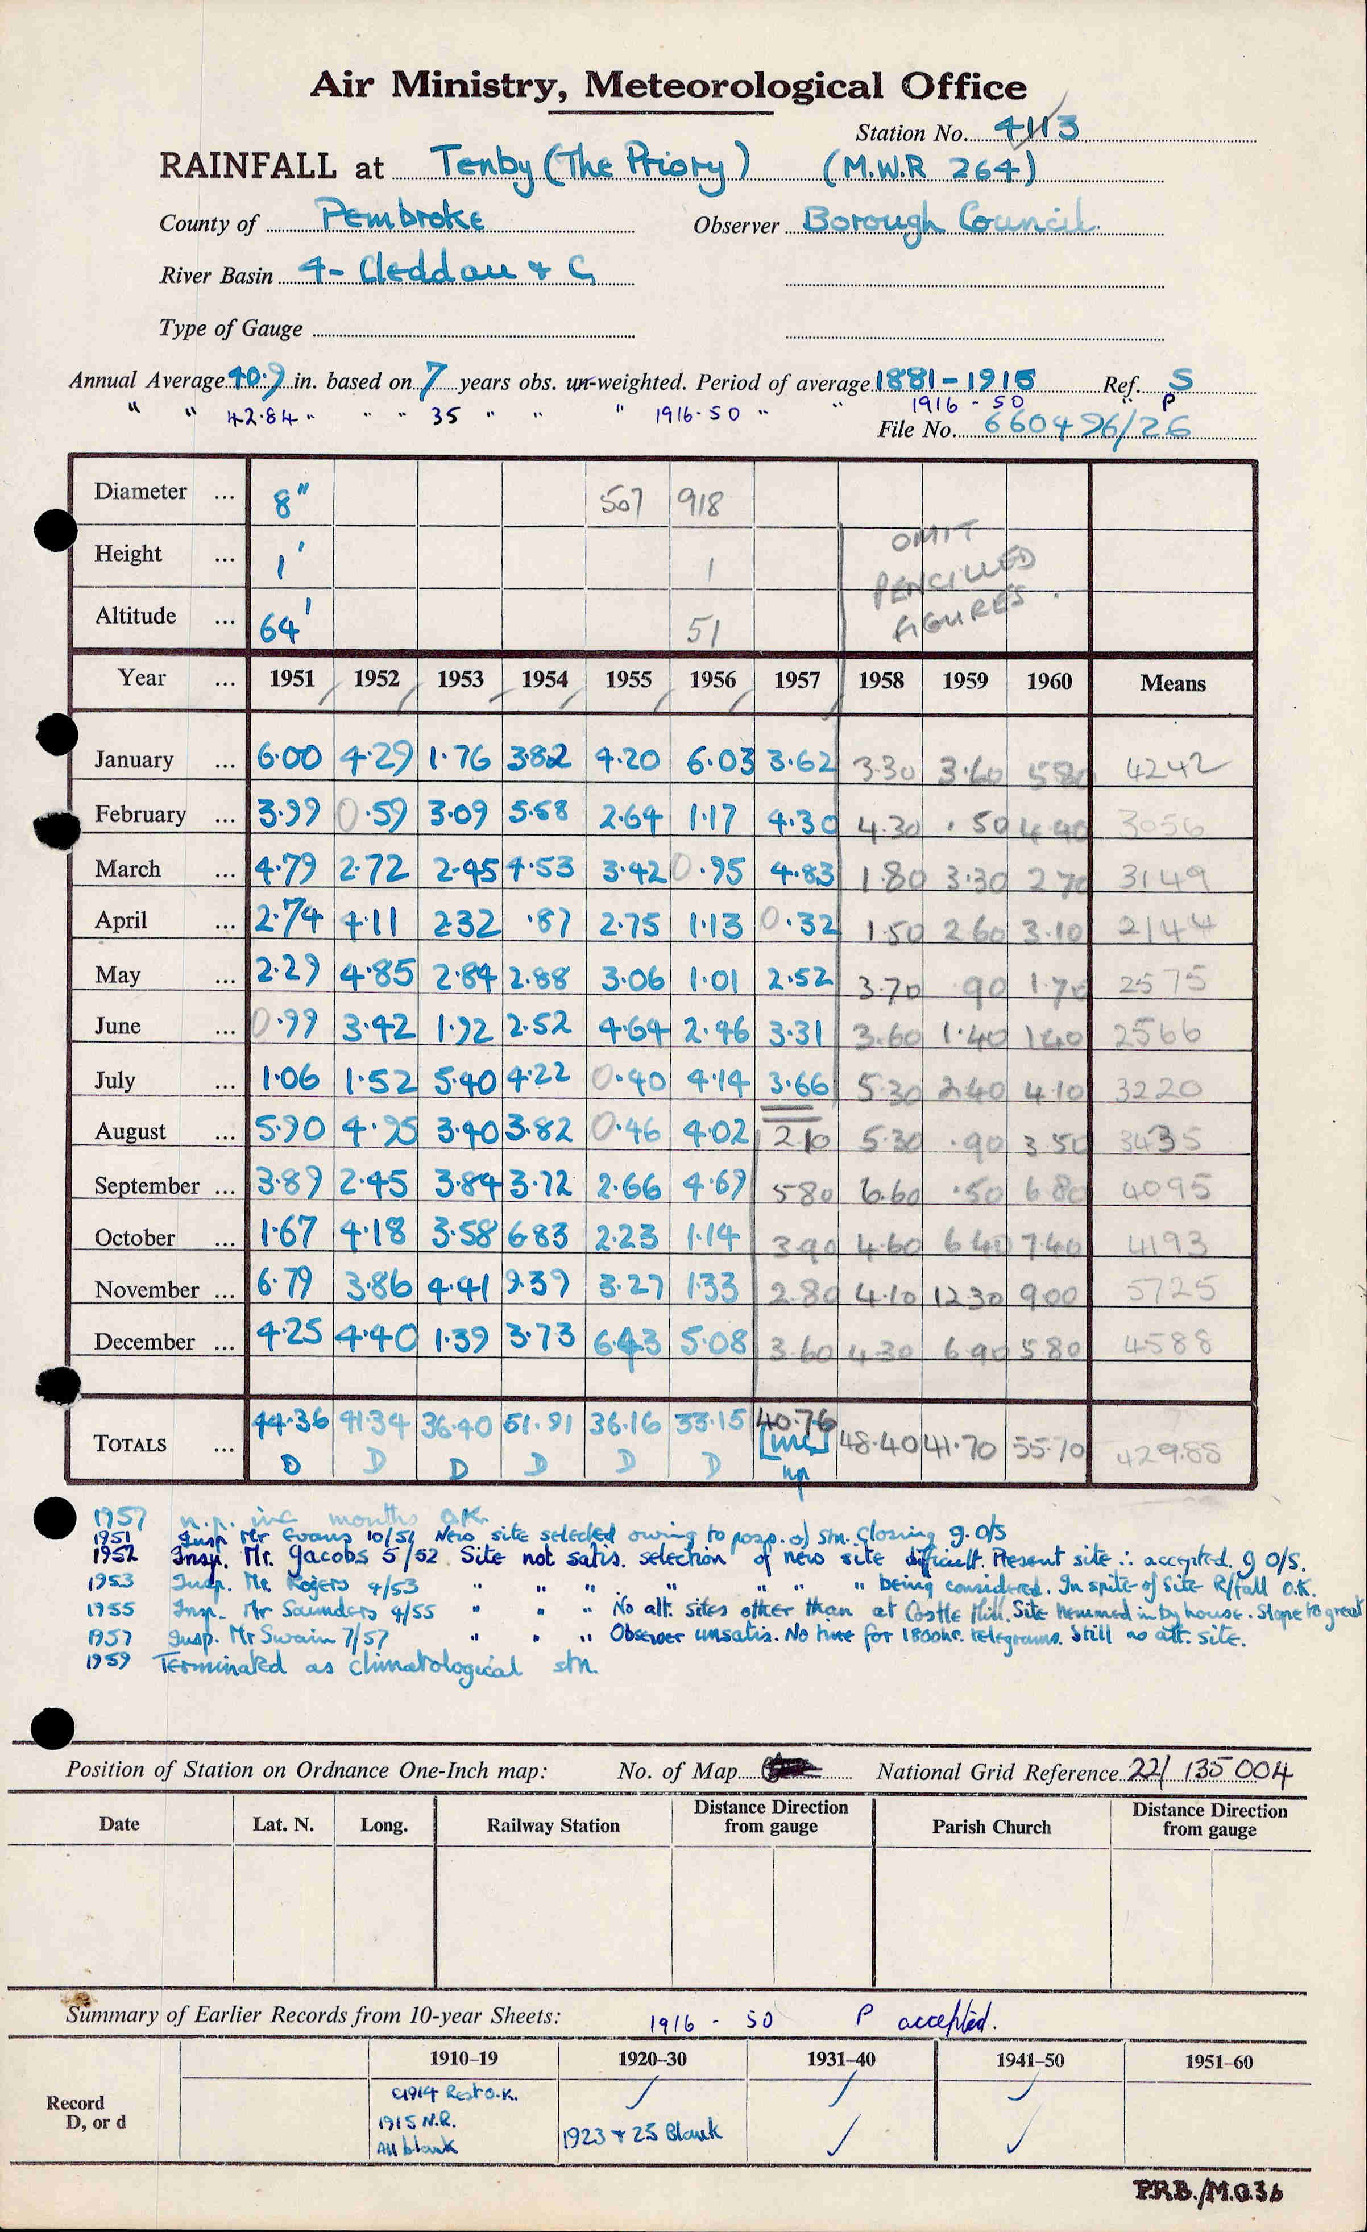 Air Ministry, Meteorological Office
Station No. 4113
RAINFALL at Tenby (The Priory) (M.W.R 264)
County of Pembroke Observer Borough Council.
River Basin 4- Cleddau & C
Type of Gauge
Annual Average 40.9 in. based on 7 years obs. un-weighted. Period of average 1881-1915 Ref. S
" " 42.84 " " " " 35 " " " 1916-50 " " 1916-50 P
File No. 660496/26
Diameter ... 8" 507 918
OMIT PENCILLED FIGURES.
Height ... 1' 1
Altitude ... 64' 51
Year ... 1951 1952 1953 1954 1955 1956 1957 1958 1959 1960 Means
January ... 6.00 4.29 1.76 3.82 4.20 6.03 3.62 3.30 3.60 5.80 4242
February ... 3.99 0.59 3.09 5.58 2.64 1.17 4.30 4.30 .50 4.40 3056
March ... 4.79 2.72 2.95 4.53 3.42 0.95 4.83 1.80 3.30 2.70 3149
April ... 2.74 4.11 2.32 .87 2.75 1.13 0.32 1.50 2.60 3.10 2144
May ... 2.29 4.85 2.84 2.88 3.06 1.01 2.52 3.70 .90 1.70 2575
June ... 0.99 3.42 1.92 2.52 4.64 2.46 3.31 3.60 1.40 1.40 2566
July ... 1.06 1.52 5.40 4.22 0.40 4.14 3.66 5.30 2.40 4.10 3220
August ... 5.90 4.95 3.90 3.82 0.46 4.02 2.10 5.30 .90 3.50 3435
September ... 3.89 2.45 3.84 3.72 2.66 4.69 5.80 6.60 .50 6.80 4095
October ... 1.67 4.18 3.58 6.83 2.23 1.14 3.90 4.60 6.40 7.40 4193
November ... 6.79 3.86 4.41 9.39 3.27 1.33 2.80 4.10 12.30 9.00 5725
December ... 4.25 4.40 1.39 3.73 6.43 5.08 3.60 4.30 6.90 5.80 4588
TOTALS ... 44.36 41.34 36.40 51.91 36.16 33.15 40.76 48.40 41.70 55.70 429.88
D D D D D D [inc] np
1957 n.p. inc months O.K.
1951 Insp Mr Evans 10/51 New site selected owing to poss. of stn. closing g. O/S
1952 Insp. Mr. Jacobs 5/52. Site not satis. selection of new site difficult. Present site ∴ accepted. g O/S.
1953 Insp. Mr. Rogers 4/53 " " " " " " " being considered. In spite of site R/fall O.K.
1955 Insp. Mr Saunders 4/55 " " " No alt. sites other than at Castle Hill. Site hemmed in by house. Slope to great
1957 Insp. Mr Swain 7/57 " " " Observer unsatis. No time for 1800hr. telegrams. Still no alt. site.
1959 Terminated as climatological stn.
Position of Station on Ordnance One-Inch map: No. of Map National Grid Reference 22/ 135 004
Date Lat. N. Long. Railway Station Distance Direction from gauge Parish Church Distance Direction from gauge
Summary of Earlier Records from 10-year Sheets: 1916 - 50 P accepted.
1910–19 1920–30 1931–40 1941–50 1951–60
Record
D, or d
1914 Rest O.K.
1915 N.R.
All blank
1923 + 25 Blank
P.R.B./M.O.36